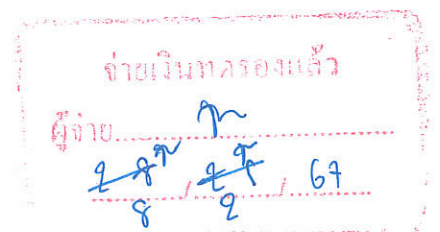 จ่ายเงินทดรองแล้ว
ผู้จ่าย
8 / 2 / 67